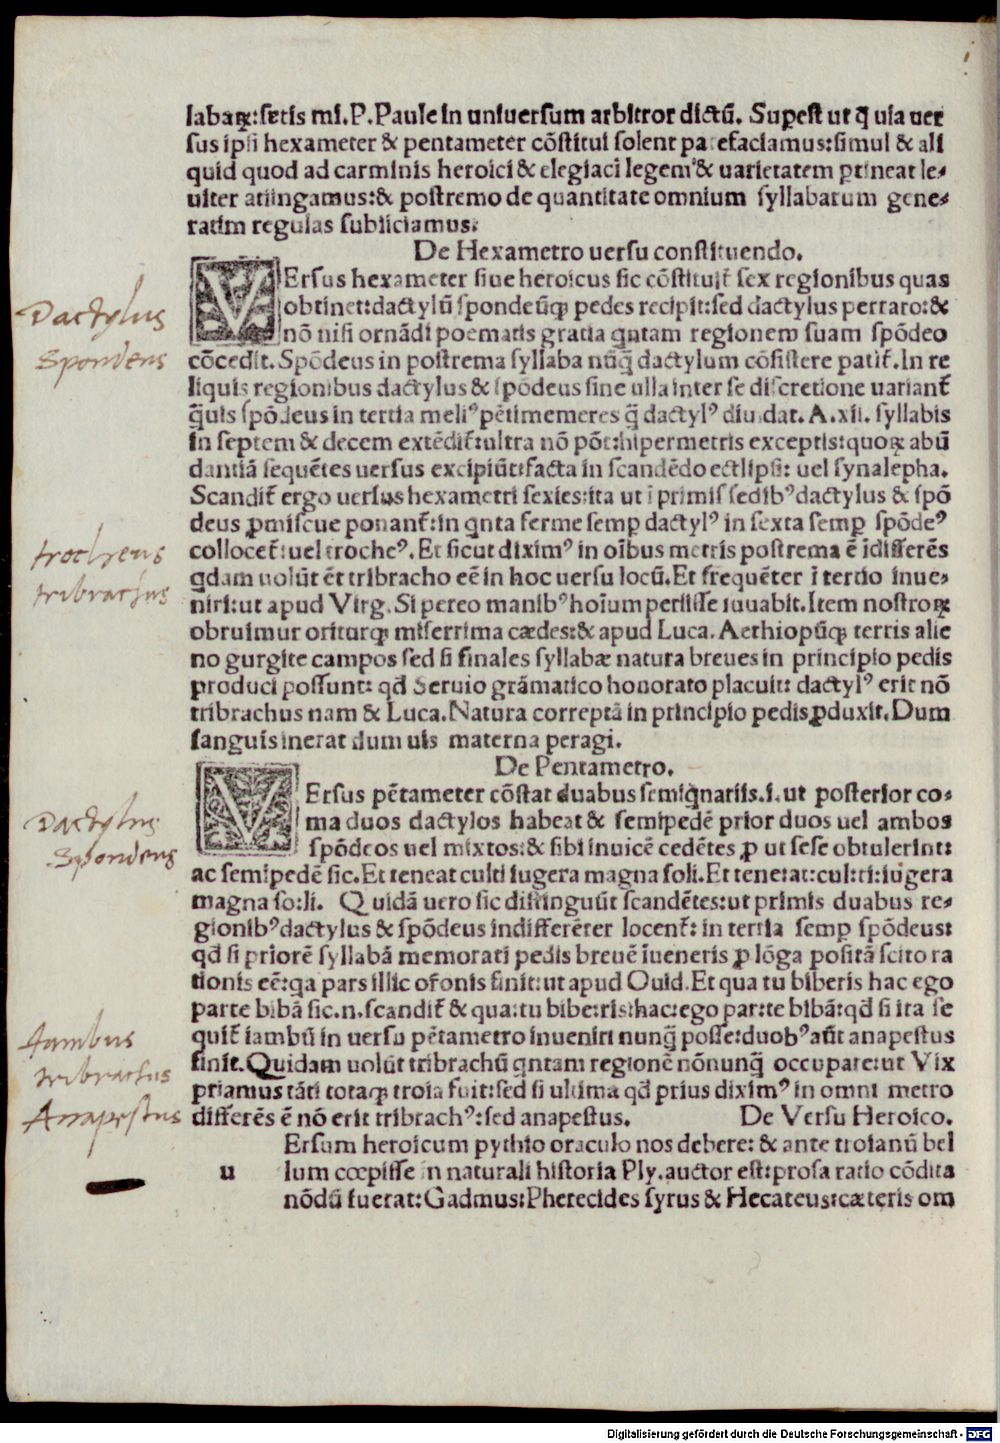 labaꝝ: sętis mi. P. Paule in uniuersum arbitror dictū. Supest ut q̄ uia uer
sus ipsi hexameter & pentameter cōstitui solent patefaciamus: simul & ali
quid quod ad carminis heroici & elegiaci legem & uarietatem ꝑtineat le-
uiter attingamus: & postremo de quantitate omnium syllabarum gene-
ratim regulas subiiciamus.
De Hexametro uersu constituendo.
VErsus hexameter siue heroicus sic cōstituit̄ sex regionibus quas
obtinet: dactylū spondeūqꝫ pedes recipit: sed dactylus perraro: &
Dactylus
nō nisi ornādi poematis gratia qntam regionem suam spōdeo
Spondeus
cōcedit. Spōdeus in postrema syllaba nūq̄ dactylum cōsistere patit̄. In re
liquis regionibus dactylus & spōdeus sine ulla inter se discretione uariant̄
q̄uis spōdeus in tertia meliꝰ pētimemeres q̄ dactylꝰ diuidat. A. xii. syllabis
in septem & decem extēdit̄: ultra nō pōt: hipermetris exceptis: quoꝝ abū
dantiā sequētes uersus excipiūt: facta in scandēdo ectlipsi: uel synalepha.
Scandit̄ ergo uersus hexametri sexies: ita ut ī primis sedibꝰ dactylus & spō
deus ꝓmiscue ponant̄: in qnta ferme semꝑ dactylꝰ in sexta semꝑ spōdeꝰ
trocheus
collocet̄: uel trocheꝰ. Et sicut diximꝰ in oībus metris postrema ē īdifferēs
tribrachus
qdam uolūt ēt tribracho eē in hoc uersu locū. Et frequēter ī tertio inue-
niri: ut apud Virg. Si pereo manibꝰ hoīum periisse iuuabit. Item nostroꝝ
obruimur oriturqꝫ miserrima cædes: & apud Luca. Aethiopūqꝫ terris alie
no gurgite campos sed si finales syllabæ natura breues in principio pedis
produci possunt: qd̄ Seruio grāmatico honorato placuit: dactylꝰ erit nō
tribrachus nam & Luca. Natura correptā in principio pedis ꝓduxit. Dum
sanguis inerat dum uis materna peragi.
De Pentametro.
VErsus pētameter cōstat duabus semiqnariis. i. ut posterior co-
Dactylus
ma duos dactylos habeat & semipedē prior duos uel ambos
Spondeus
spōdeos uel mixtos: & sibi inuicē cedētes ꝓ ut sese obtulerint:
ac semipedē sic. Et teneat culti iugera magna soli. Et tene: at: cul: ti: iugera
magna so: li. Quidā uero sic distinguūt scandētes: ut primis duabus re-
gionibꝰ dactylus & spōdeus indifferēter locent̄: in tertia semꝑ spōdeus:
qd̄ si priorē syllabā memorati pedis breuē īueneris ꝓ lōga positā scito ra
tionis eē: qa pars illic or̄onis finit: ut apud Ouid. Et qua tu biberis hac ego
parte bibā sic. n. scandit̄ & qua: tu bibe: ris: hac: ego par: te bibā: qd̄ si ita se
Iambus
quit̄ iambū in uersu pētametro inueniri nunq̄ posse: duobꝰ aūt anapestus
tribrachus
finit. Quidam uolūt tribrachū qntam regionē nōnunq̄ occupare: ut Vix
priamus tāti totaqꝫ troia fuit: sed si ultima qd̄ prius diximꝰ in omni metro
Anapestus
differēs ē nō erit tribrachꝰ: sed anapestus. De Versu Heroico.
Ersum heroicum pythio oraculo nos debere: & ante troianū bel
u lum cœpisse in naturali historia Ply. auctor est: prosa ratio cōdita
nōdū fuerat: Gadmus: Pherecides syrus & Hecateus: cæteris om
Digitalisierung gefördert durch die Deutsche Forschungsgemeinschaft - DFG